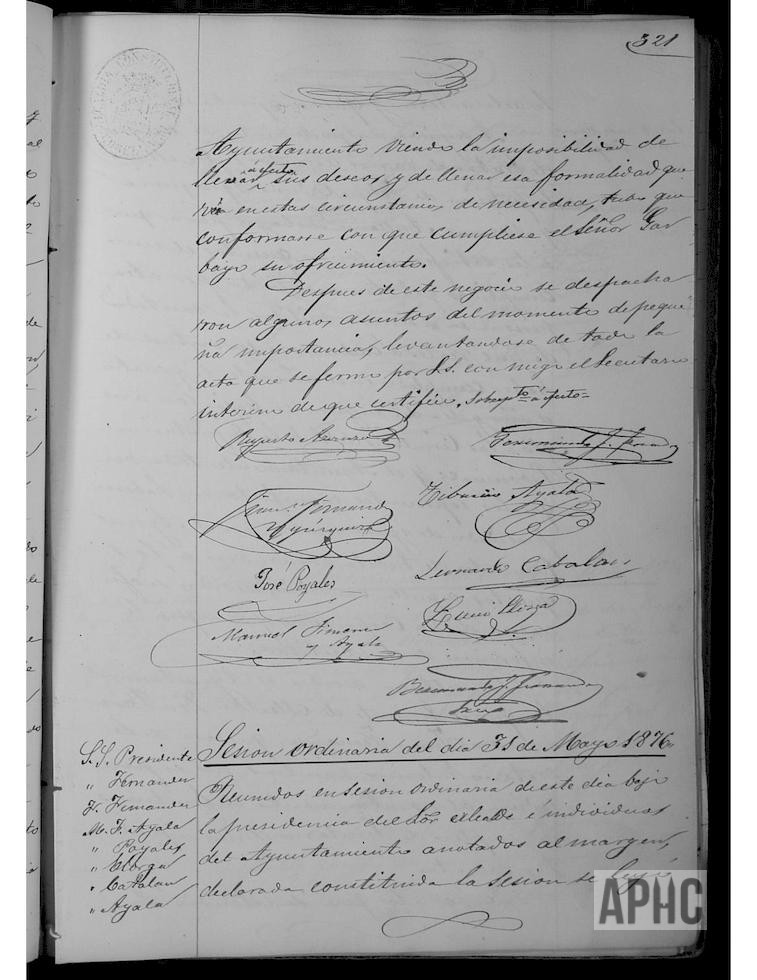 321
Ayuntamiento viendo la imposibilidad de
llevar á efecto sus deseos y de llenar esa formalidad que
en estas circunstancias de necesidad, tubo que
conformarse con que cumpliese el Señor Gar
bayo su ofrecimiento.
Despues de este negocio se despacha
ron algunos asuntos del momento de peque
ña importancia, levantandose de todo la
acta que se firmo por S.S. con migo el Secretario
interino de que certifico, Sobrepto á efecto=
Ruperto
Tiburcio Ayala
Franco Fernand
José Poyales
Leonardo Catalan
Manuel Jimenez
y Ayala
Lucio Llorga
Sesion ordinaria del dia 31 de Mayo 1876
S.S. Presidente
" Fernandez
F. Fernandez
M. J. Ayala
" Poyales
" Llorga
" Catalan
" Ayala
Reunidos en sesion ordinaria de este dia bajo
la presidencia del Sor Alcalde é individuos
del Ayuntamiento anotados al margen,
declarada constituida la sesion se leyó
APHC